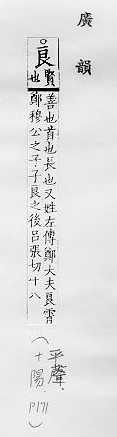 廣韻
良
賢也
善也首也長也又姓左傳鄭大夫良霄
鄭穆公之子子良之後呂張切十八
(平聲、十陽、P171)